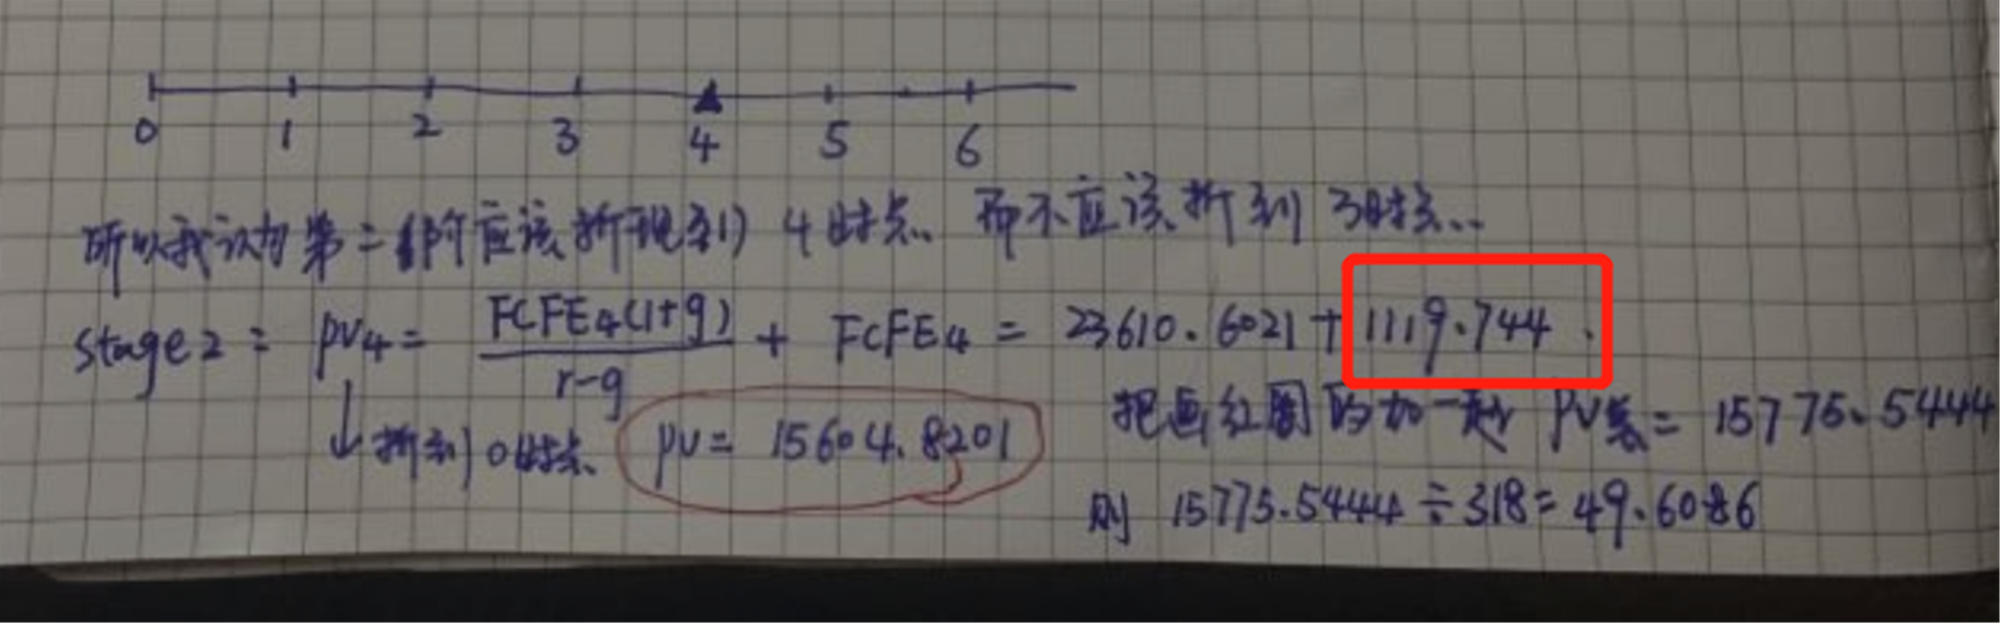 0 1 2 3 4 5 6
所以我认为第二阶应该折现到 4时点.. 而不应该折到 3时点...
stage2: PV4 = FCFE4(1+g) / r-g + FCFE4 = 23610.6021 + 1119.744.
↓折到0时点 PV = 15604.8201
把画红圈的加一起 PV总 = 15775.5444
则 15775.5444 ÷ 318 = 49.6086